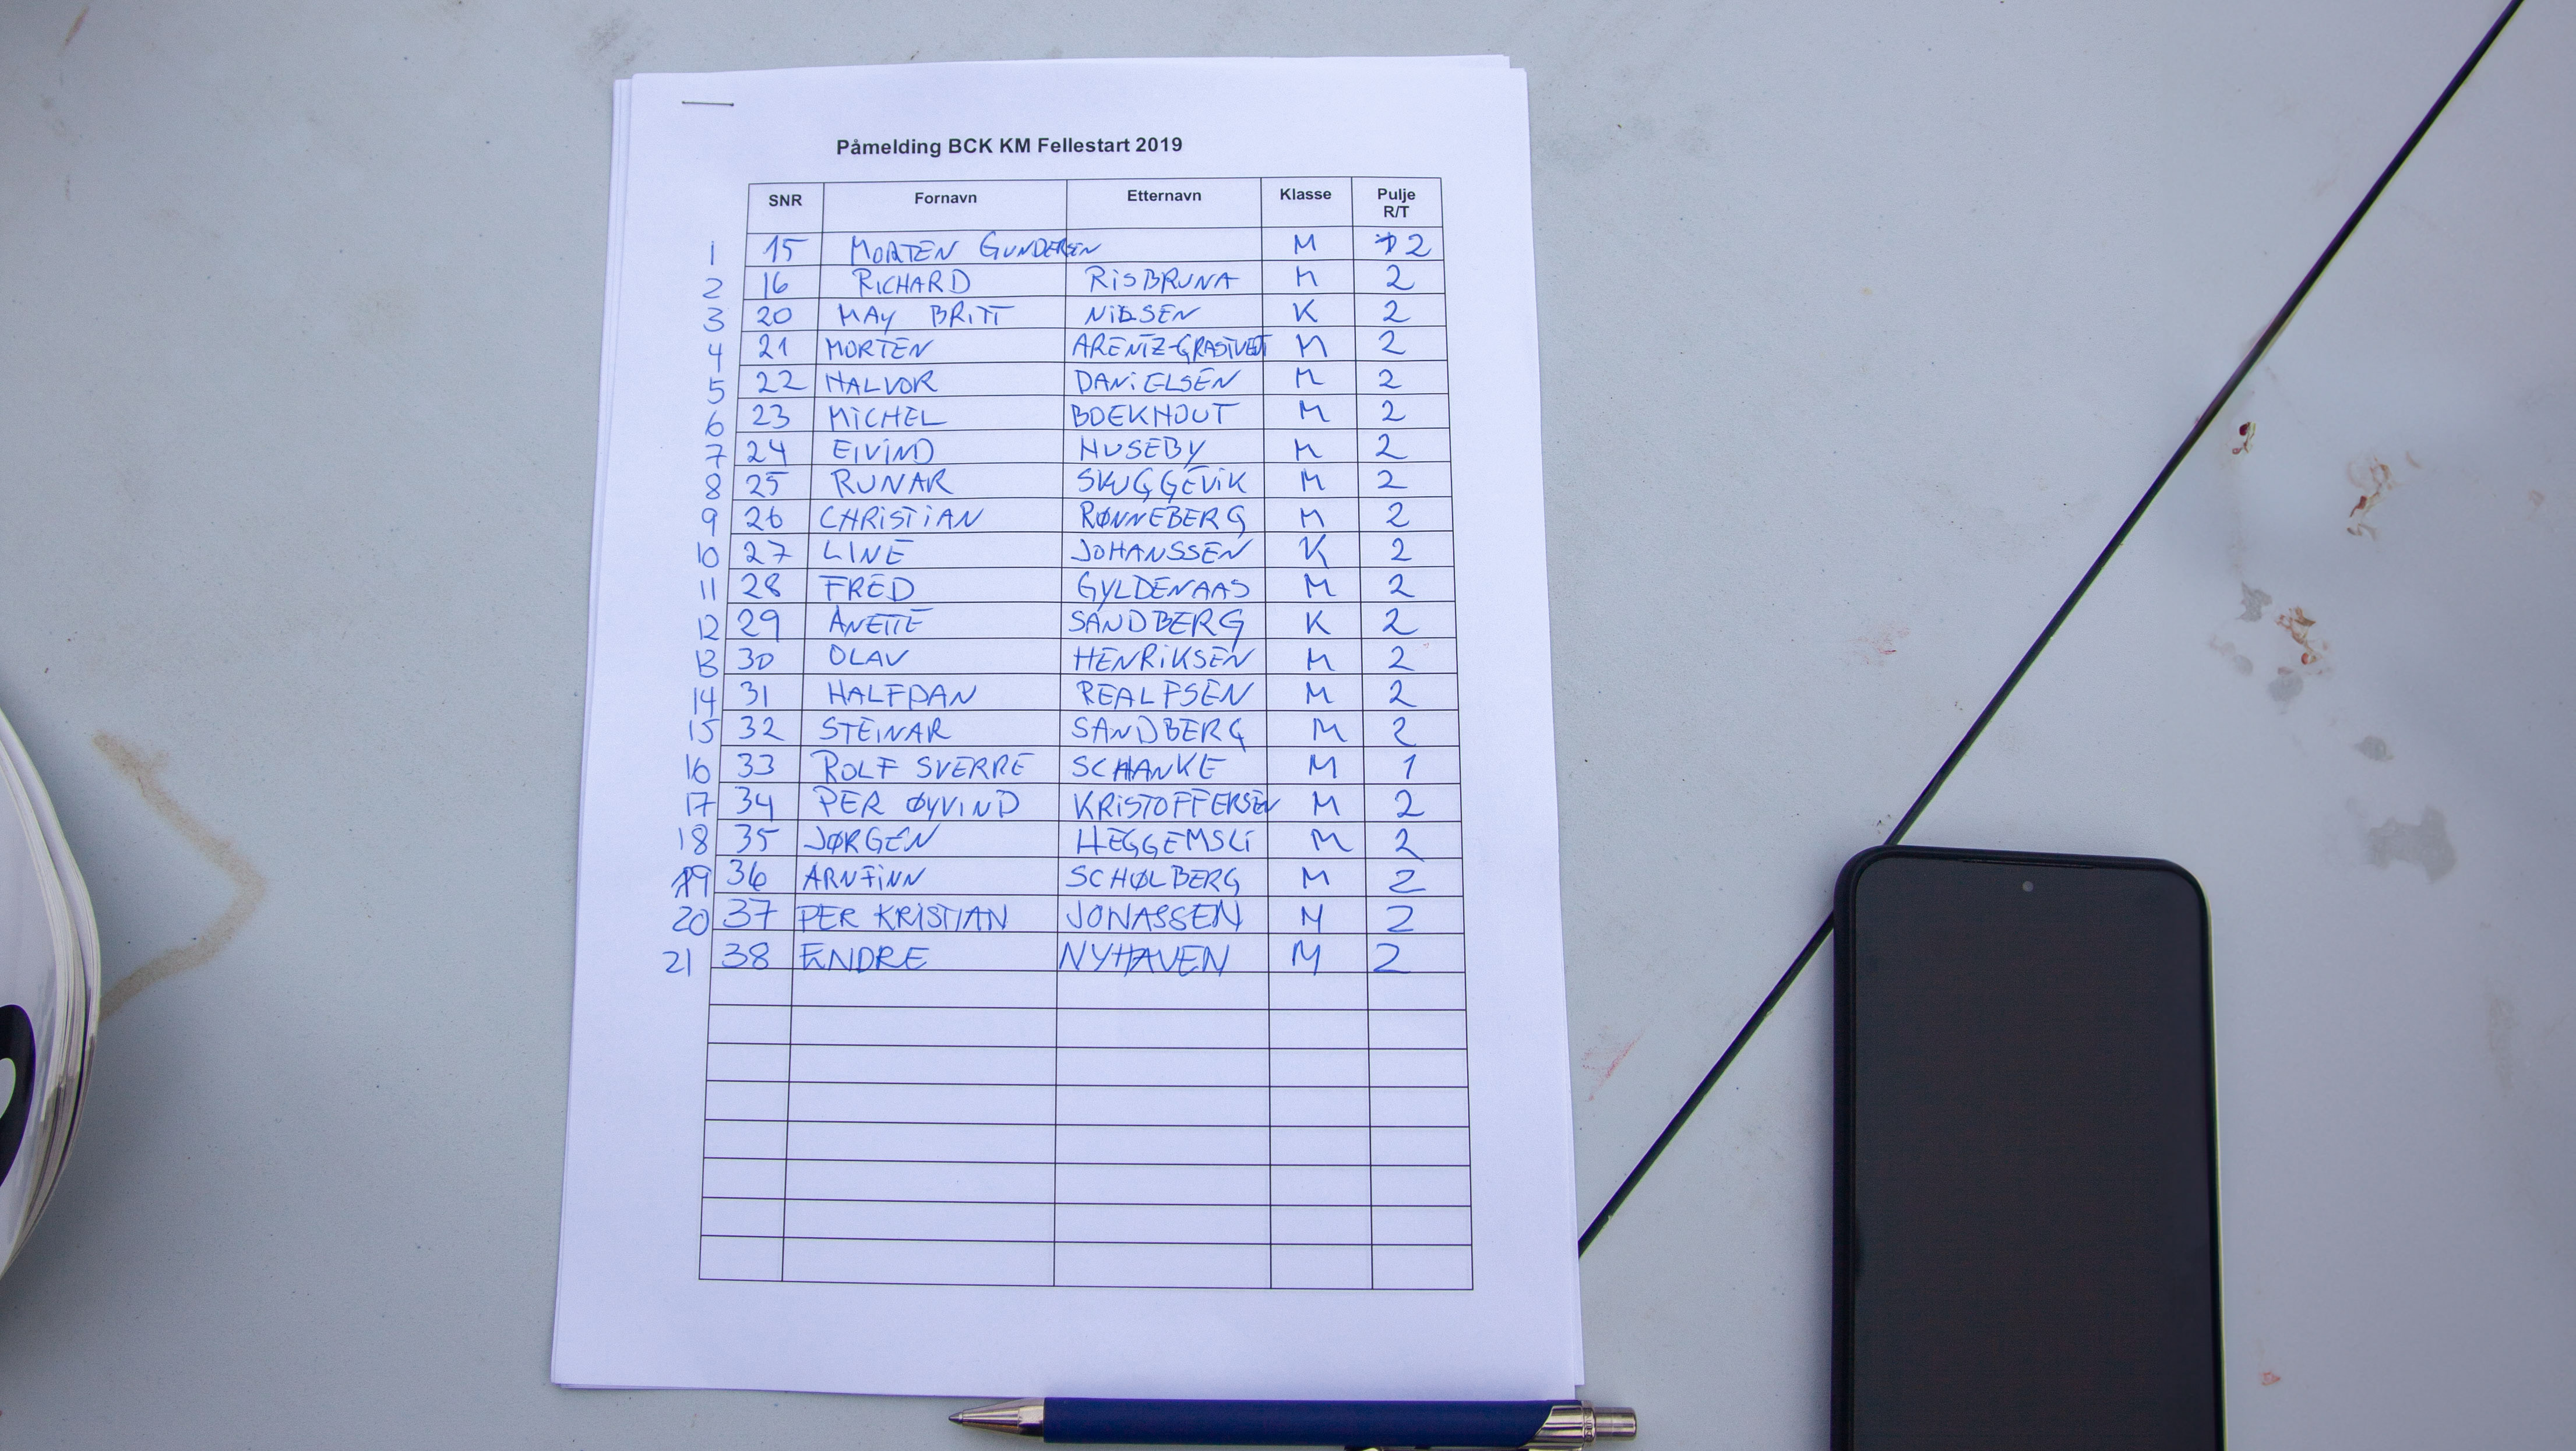 Påmelding BCK KM Fellestart 2019
SNR Fornavn Etternavn Klasse Pulje R/T
1 15 MORTEN GUNDERSEN M 2
2 16 RICHARD RISBRUNA M 2
3 20 MAY BRITT NILSEN K 2
4 21 MORTEN ARENTZ-GRASTVEDT M 2
5 22 HALVOR DANIELSEN M 2
6 23 MICHEL BOEKHOUT M 2
7 24 EIVIND HUSEBY M 2
8 25 RUNAR SKUGGEVIK M 2
9 26 CHRISTIAN RØNNEBERG M 2
10 27 LINE JOHANSSEN K 2
11 28 FRED GYLDENAAS M 2
12 29 ANETTE SANDBERG K 2
13 30 OLAV HENRIKSEN M 2
14 31 HALFDAN REALFSEN M 2
15 32 STEINAR SANDBERG M 2
16 33 ROLF SVERRE SCHANKE M 1
17 34 PER ØYVIND KRISTOFFERSEN M 2
18 35 JØRGEN HEGGEMSLI M 2
19 36 ARNFINN SCHØLBERG M 2
20 37 PER KRISTIAN JONASSEN M 2
21 38 ENDRE NYHAVEN M 2